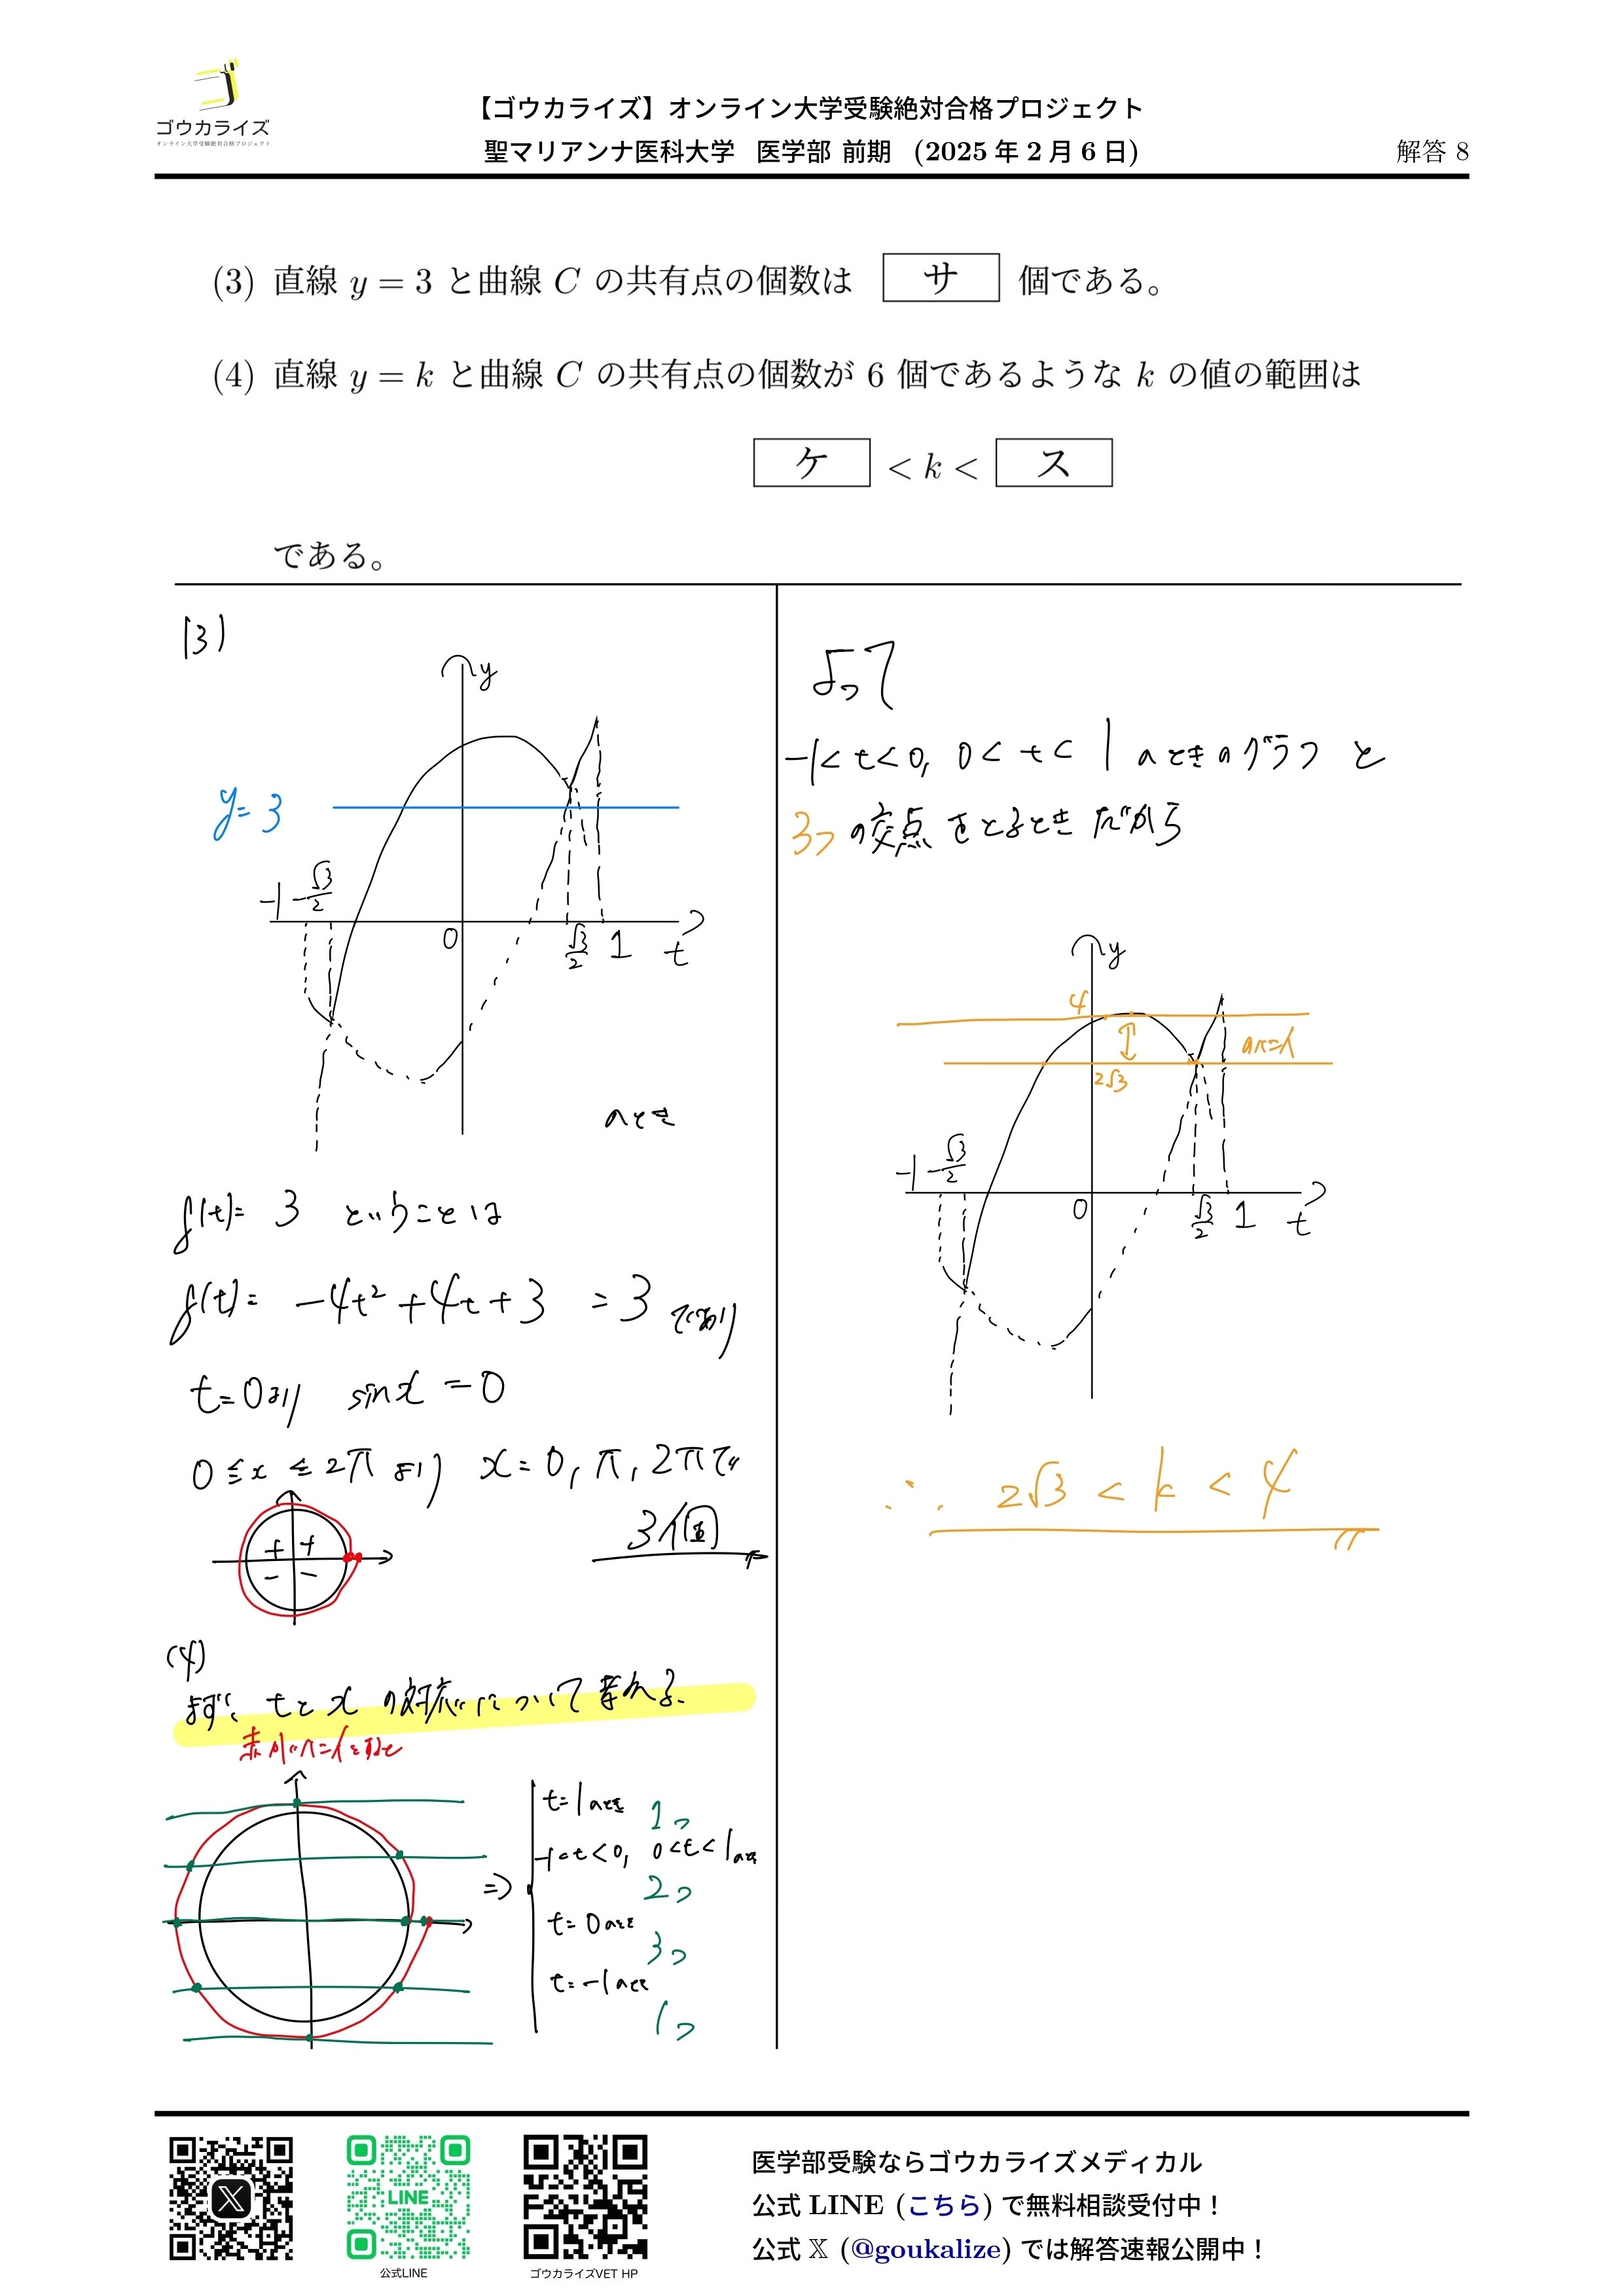 ゴウカライズ
オンライン大学受験絶対合格プロジェクト
【ゴウカライズ】オンライン大学受験絶対合格プロジェクト
聖マリアンナ医科大学 医学部 前期 (2025 年 2 月 6 日)
解答 8
(3) 直線 y = 3 と曲線 C の共有点の個数は サ 個である。
(4) 直線 y = k と曲線 C の共有点の個数が 6 個であるような k の値の範囲は
ケ < k < ス
である。
(3)
y
y=3
-1 -√3/2
0 √3/2 1 t
のとき
f(t)= 3 ということは
f(t)= -4t²+4t+3 =3 であり
t=0より sinx=0
0≦x≦2πより x=0, π, 2πで
+ +
- -
3個
(4)
まず、tとxの対応について考える。
t=1のとき 1つ
-1<t<0, 0<t<1のとき
2つ
⇒
t=0のとき
3つ
t=-1のとき
1つ
よって
-1<t<0, 0<t<1のときのグラフと
3つの交点をとるときだから
y
4
2√3
-1 -√3/2
0 √3/2 1 t
∴ 2√3<k<4
LINE
公式LINE
ゴウカライズVET HP
医学部受験ならゴウカライズメディカル
公式 LINE (こちら) で無料相談受付中！
公式 𝕏 (@goukalize) では解答速報公開中！